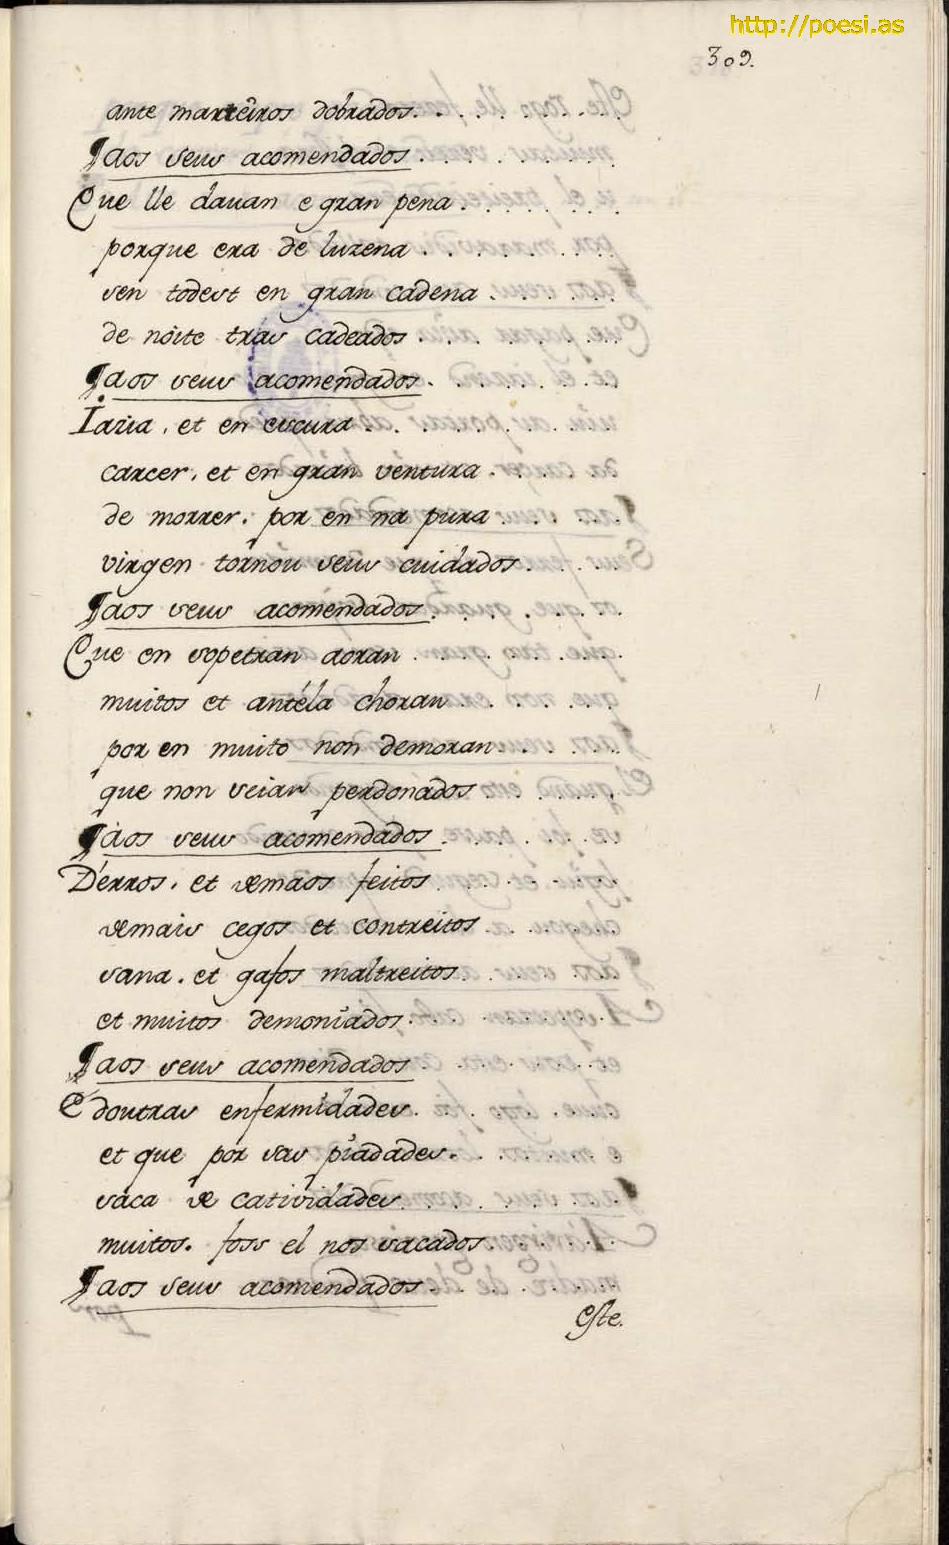 http://poesi.as
309.
ante marteiros dobrados.
¶aos seus acomendados.
Que lle dauan e gran pena.
porque era de luzena.
sen todest en gran cadena.
de noite tras cadeados.
¶aos seus acomendados.
Iazia, et en escura.
carcer, et en gran ventura.
de morrer. por en na pura.
virgen tornou seus cuidados.
¶aos seus acomendados.
Que en sopetran aoran.
muitos et antéla choran.
por en muito non demoran.
que non seian perdonados.
¶aos seus acomendados.
D'erros. et demaos feitos
demais cegos et contreitos
sana. et gafos maltreitos.
et muitos demoniados.
¶aos seus acomendados
E doutras enfermidades.
et que por sas piadades.
saca de catividades.
muitos. foss el nos sacados
¶aos seus acomendados.
Este.